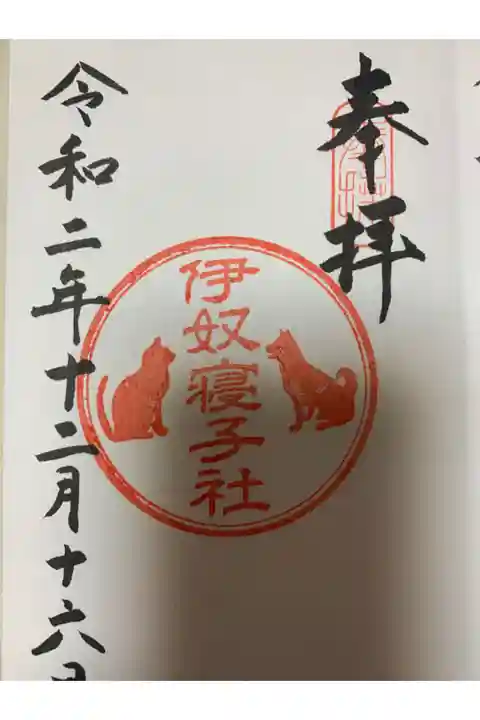 奉拝
伊奴寝子社
令和二年十二月十六日